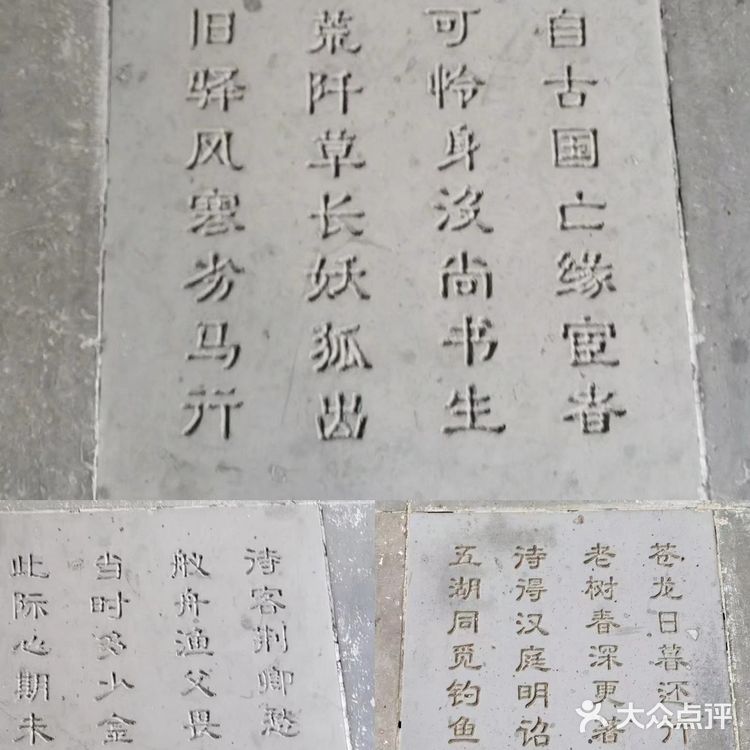 自古国亡缘宦者
可怜身没尚书生
荒阡草长妖狐出
旧驿风寒劣马行
待客荆卿愁
舣舟渔父畏
当时多少金
此际心期未
苍龙日暮还行
老树春深更著
待得汉庭明诏
五湖同觅钓鱼
大众点评